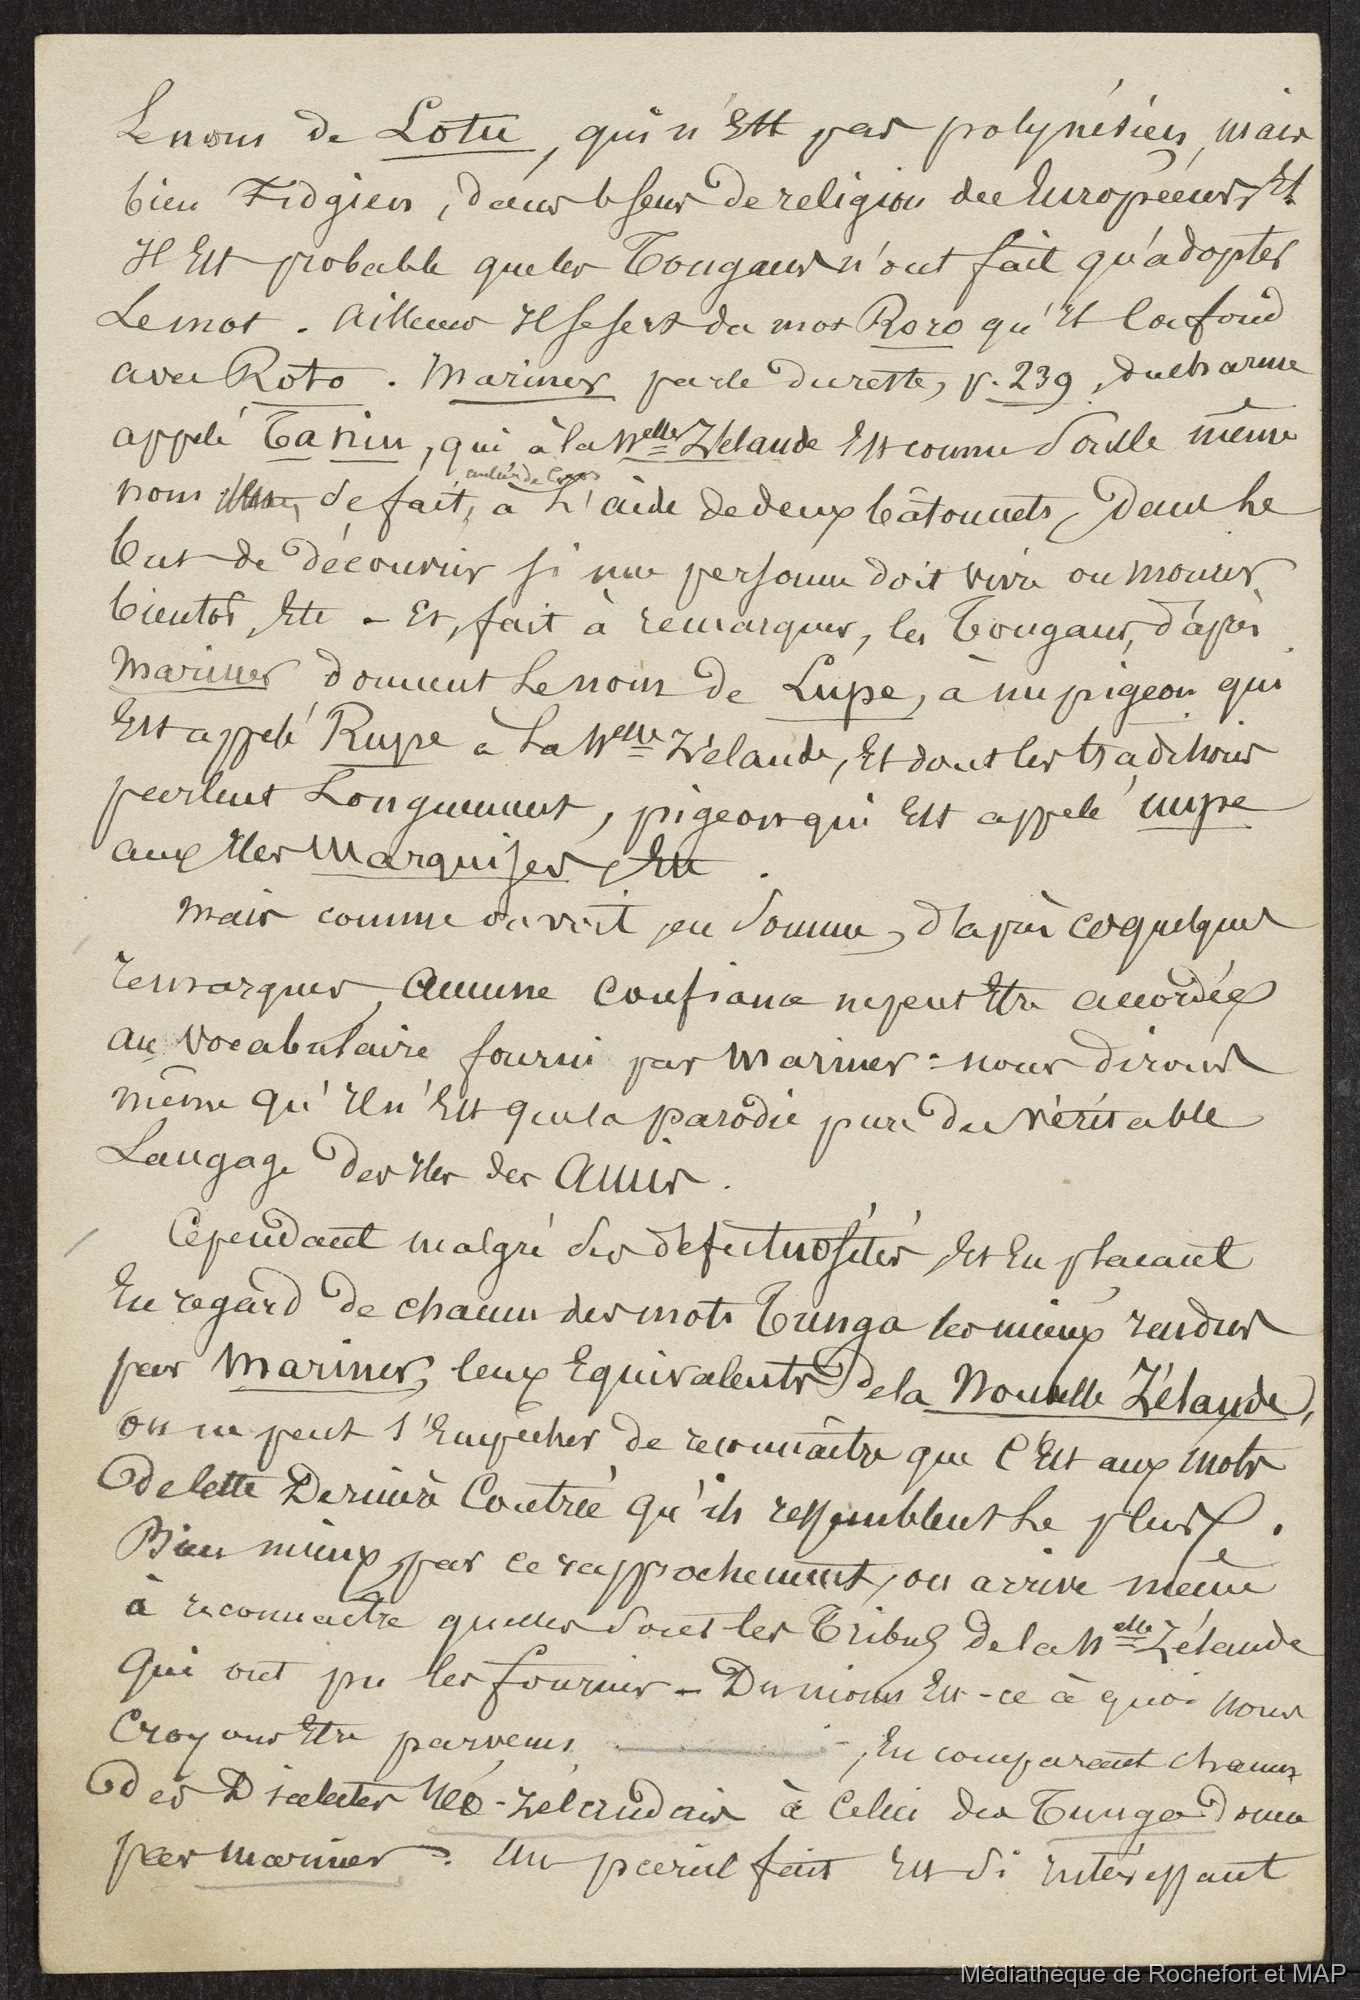 Le nom de Lotu, qui n'est pas polynésien, mais
bien Fidgien, dans le sens de religion des Européens, Et
Il Est probable que les Tongans n'ont fait qu'adopter
Le mot. Ailleurs Il se sert du mot Roro qu'Il confond
avec Roto. Mariner parle du reste, p. 239, du charme
appelé Ta niu, qui à la Nelle Zélande Est connu sous le même
nom de fait, à L'aide de deux bâtonnets, Dans Le
But de Découvrir si une personne doit vivre ou mourir
bientôt, Etc - Et, fait à remarquer, les Tongans, d'après
Mariner donnent Le nom de Lupe, à un pigeon qui
Est appelé Rupe à La Nelle Zélande, Et dont les traditions
parlent Longuement, pigeon qui Est appelé uupe
aux Iles Marquises, Etc.
Mais comme on voit, en somme, d'après ces quelques
remarques, Aucune Confiance ne peut Etre accordée
au Vocabulaire fourni par Mariner : nous dirons
même qu'Il n'Est que la parodie pure Du véritable
Langage Des Iles des Amis.
Cependant malgré ses défectuosités, Et En plaçant
En regard De chacun des mots Tunga les mieux rendus
par Mariner, leux Equivalents De la Nouvelle Zélande,
on ne peut s'Empêcher de reconnaître que C'Est aux mots
De Cette Dernière Contrée qu'ils ressemblent Le plus.
Bien mieux, par ce rapprochement, on arrive même
à reconnaître quelles sont les Tribus De la Nelle Zélande
Qui ont pu les fournir - Du moins Est-ce à quoi nous
Croyons Etre parvenu, En comparant chacun
Des Dialectes Néo-Zélandais à Celui des Tunga donné
par Mariner. Un pareil fait Est si intéressant
Médiathèque de Rochefort et MAP